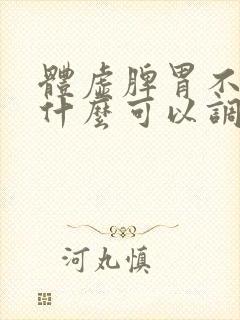 體虛脾胃不
什麼可以調
河丸慎